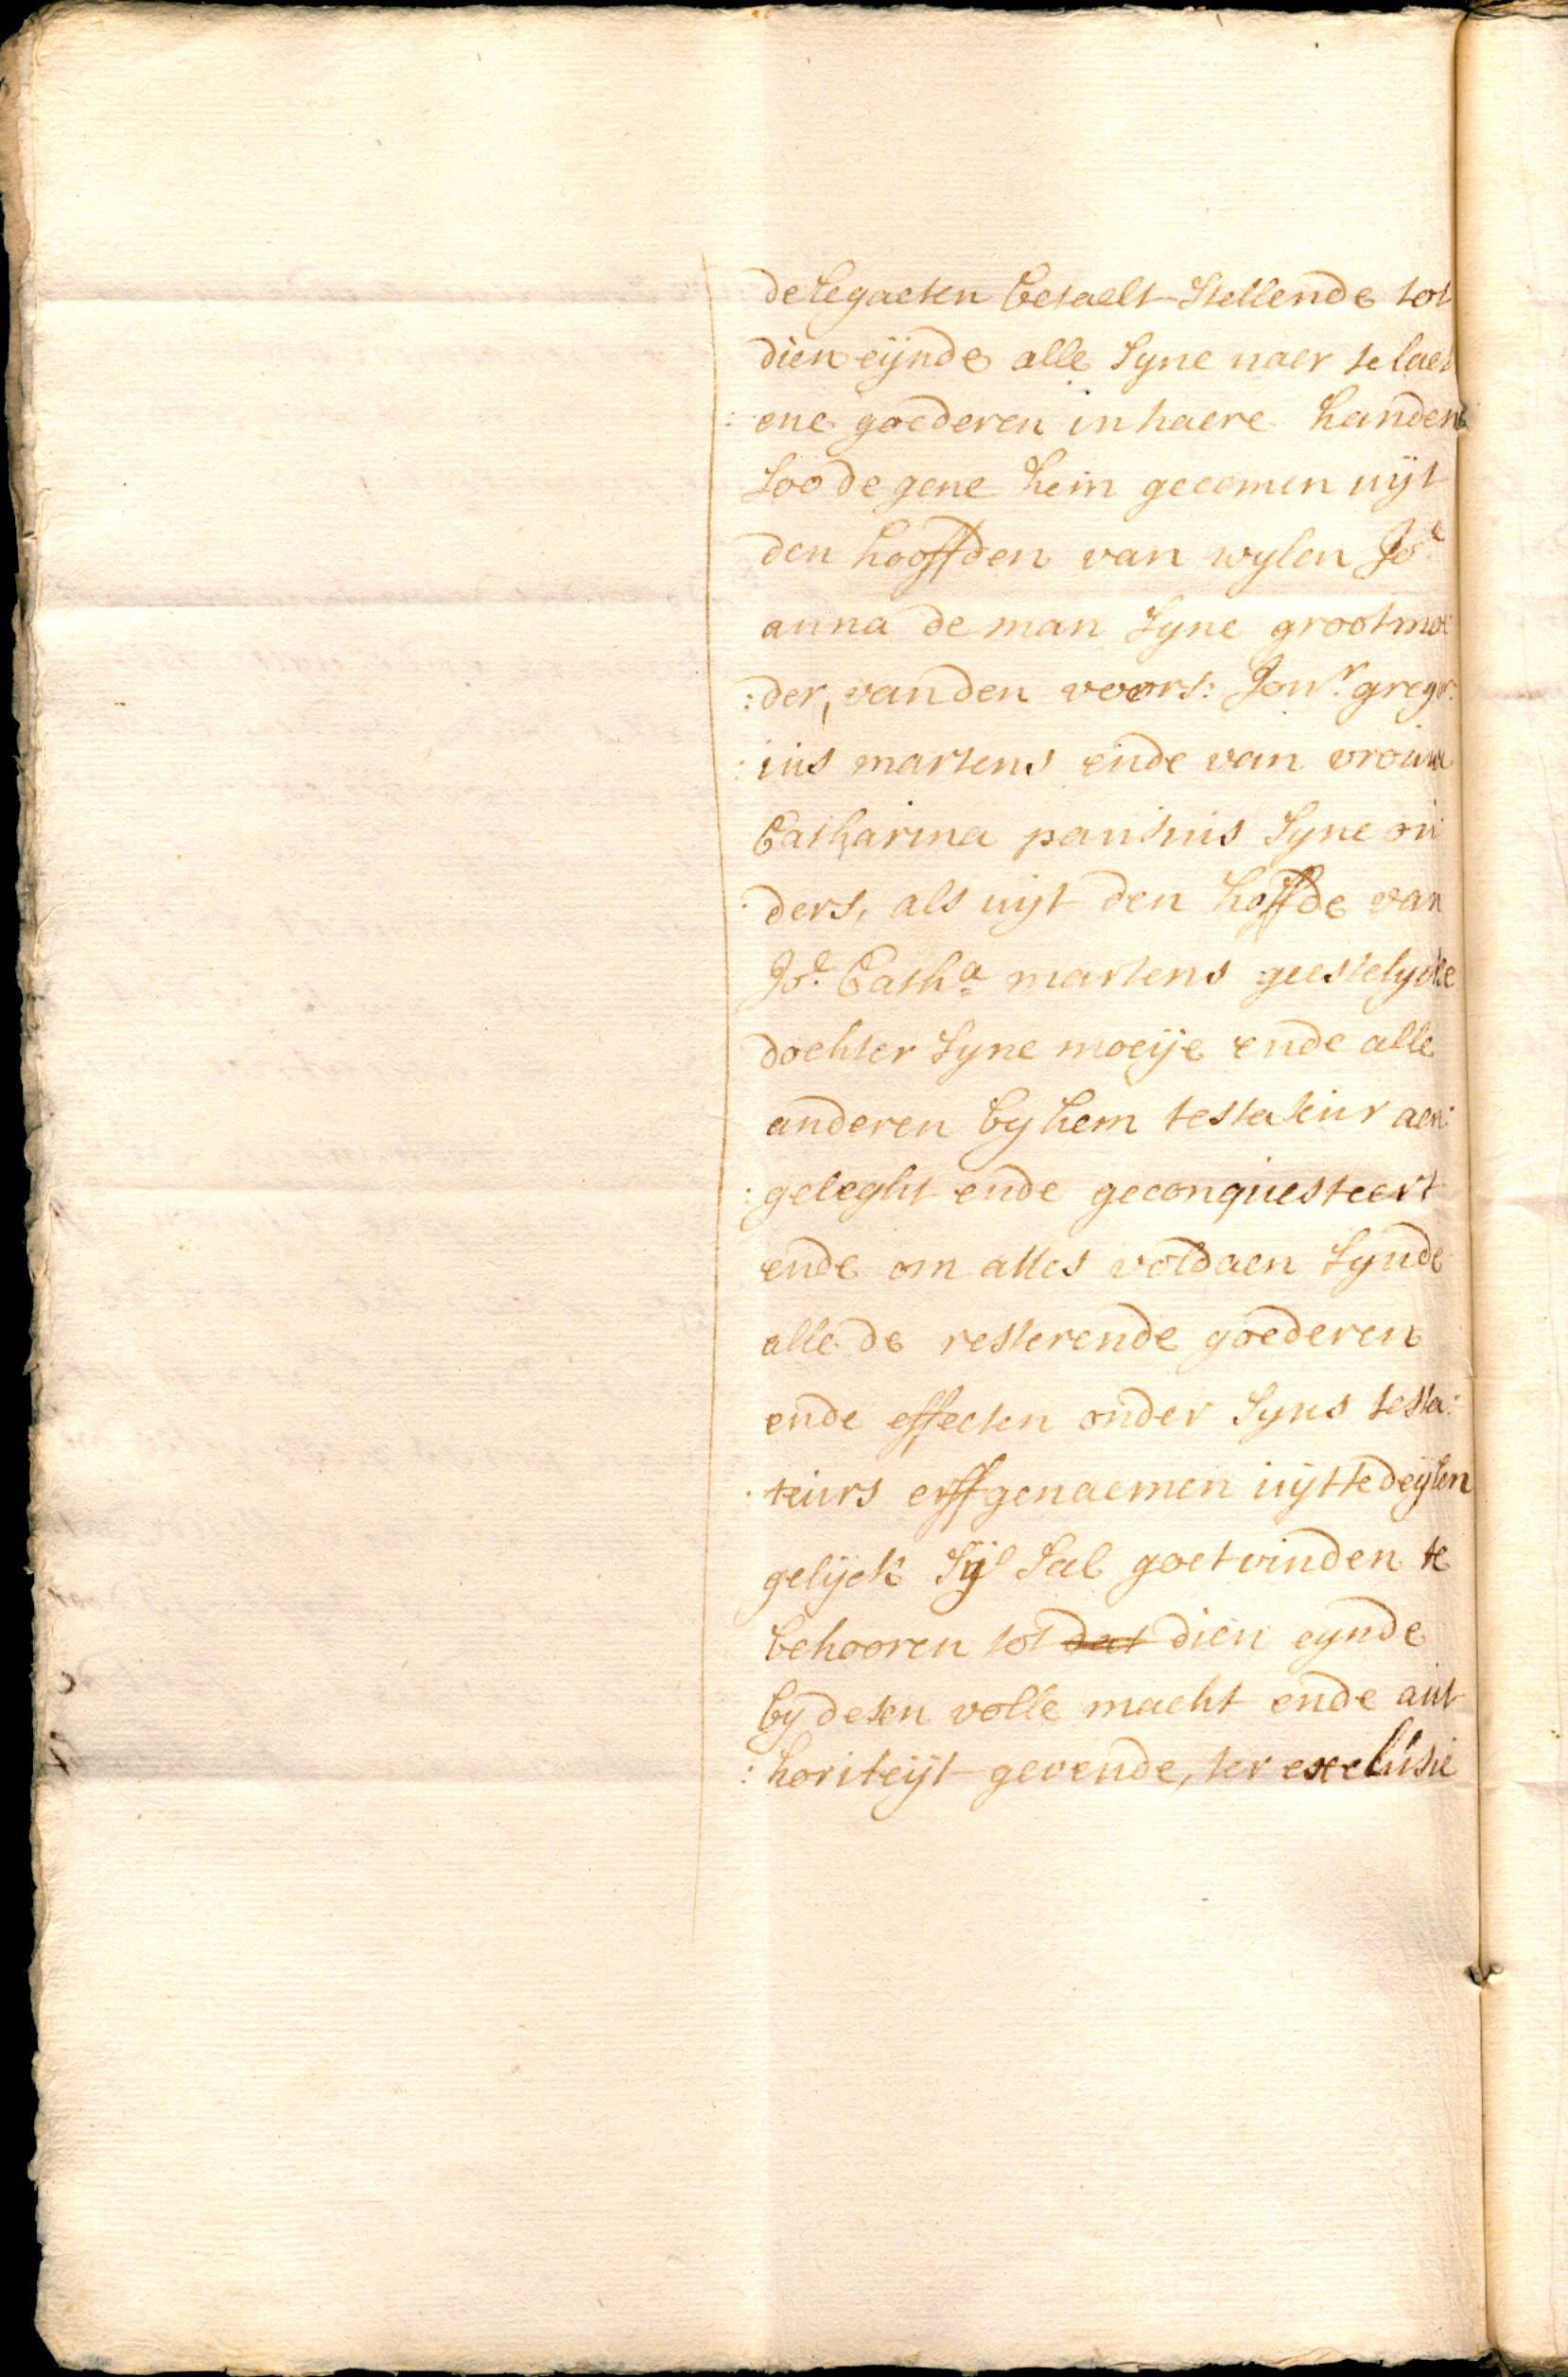 de legaeten betaelt stellende tot
dien eijnde alle syne naer te laet
: ene goederen in haere handen
soo de gene hem gecomen uijt
den hooffden van wylen Jo.e
anna de man syne grootmoe
: der, van den voors: Jonr. gregor:
: ius martens ende van vrouw
Catharina pausuis syne ou:
: ders, als uijt den hoffde van
Joe. Catha. martens geestelycke
dochter syne moeije ende alle
anderen by hem testateur aen:
: geleght ende geconquesteert
ende om alles voldaen synde
alle de resterende goederen
ende effecten onder syns testa:
: teurs erffgenaemen uijt te deylen
gelijck sij sal goet vinden te
behooren tot dat dien eynde
by desen volle macht ende aut
: horiteijt gevende, ter exclusie